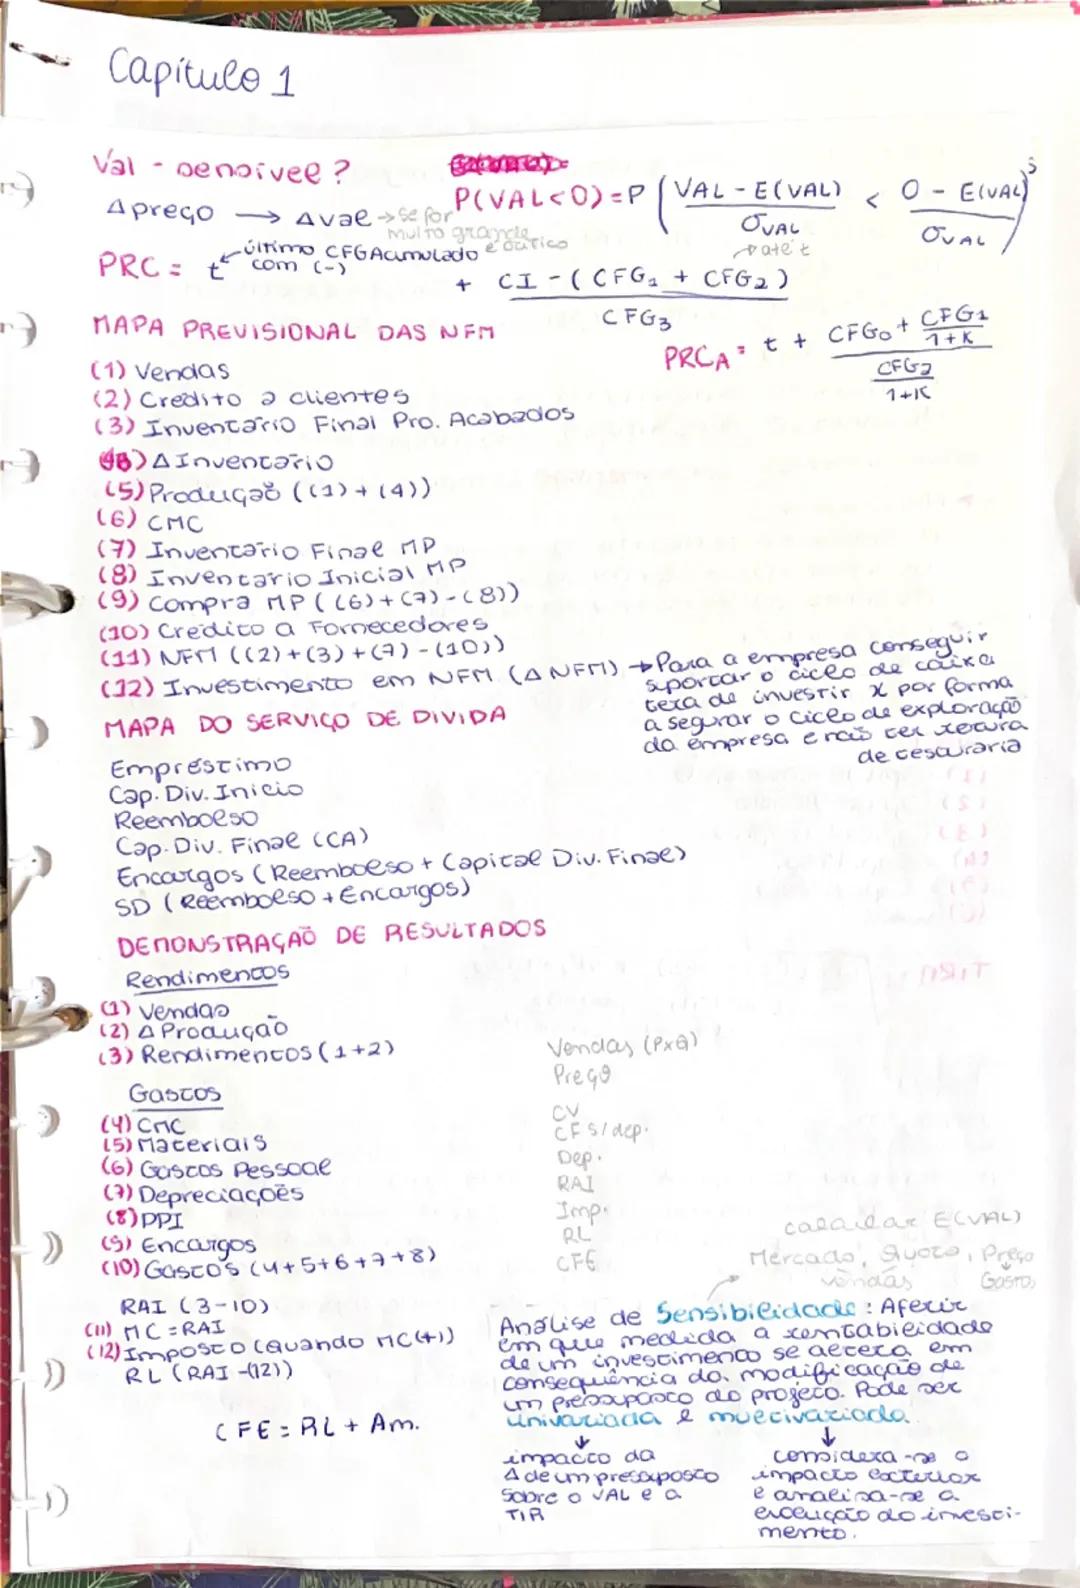 Capítulo 1
Val - sensível?
P(VAL<0) = P ( VAL - E(VAL) / σVAL < 0 - E(VAL) / σVAL )
Δ preço → Δ val → se for muito grande é crítico
PRC = t + CI - (CFG1 + CFG2) / CFG3
último CFG Acumulado com (-)
até t
MAPA PREVISIONAL DAS NFM
PRCA = t + CFG0 + CFG1/1+K / CFG2/1+K
(1) Vendas
(2) Crédito a clientes
(3) Inventário Final Pro. Acabados
Δ Inventário
(5) Produção ((1) + (4))
(6) CMC
(7) Inventário Final MP
(8) Inventário Inicial MP
(9) Compra MP ((6)+(7)-(8))
(10) Crédito a Fornecedores
(11) NFM ((2)+(3)+(7)-(10))
(12) Investimento em NFM (Δ NFM) → Para a empresa conseguir
suportar o ciclo de caixa
terá de investir x por forma
a segurar o ciclo de exploração
da empresa e não ter rotura
de tesouraria
MAPA DO SERVIÇO DE DIVIDA
Empréstimo
Cap. Div. Início
Reembolso
Cap. Div. Final (CA)
Encargos (Reembolso + Capital Div. Final)
SD (Reembolso + Encargos)
DEMONSTRAÇÃO DE RESULTADOS
Rendimentos
(1) Vendas
(2) Δ Produção
(3) Rendimentos (1+2)
Gastos
(4) CMC
(5) Materiais
(6) Gastos Pessoal
(7) Depreciações
(8) PPI
(9) Encargos
(10) Gastos (4+5+6+7+8)
RAI (3-10)
(11) MC = RAI
(12) Imposto (Quando MC(+))
RL (RAI -(12))
CFE = RL + Am.
Vendas (PxQ)
Preço
CV
CF s/dep.
Dep.
RAI
Imp.
RL
CFE
calcular E(VAL)
Mercado, Quota, Preço
vendas Gastos
Análise de Sensibilidade: Aferir
em que medida a rentabilidade
de um investimento se altera em
consequência da modificação de
um pressuposto do projeto. Pode ser
univariada e multivariada.
↓
impacto da
Δ de um pressuposto
sobre o VAL e a
TIR
↓
considera-se o
impacto exterior
e analisa-se a
execução do investi-
mento.